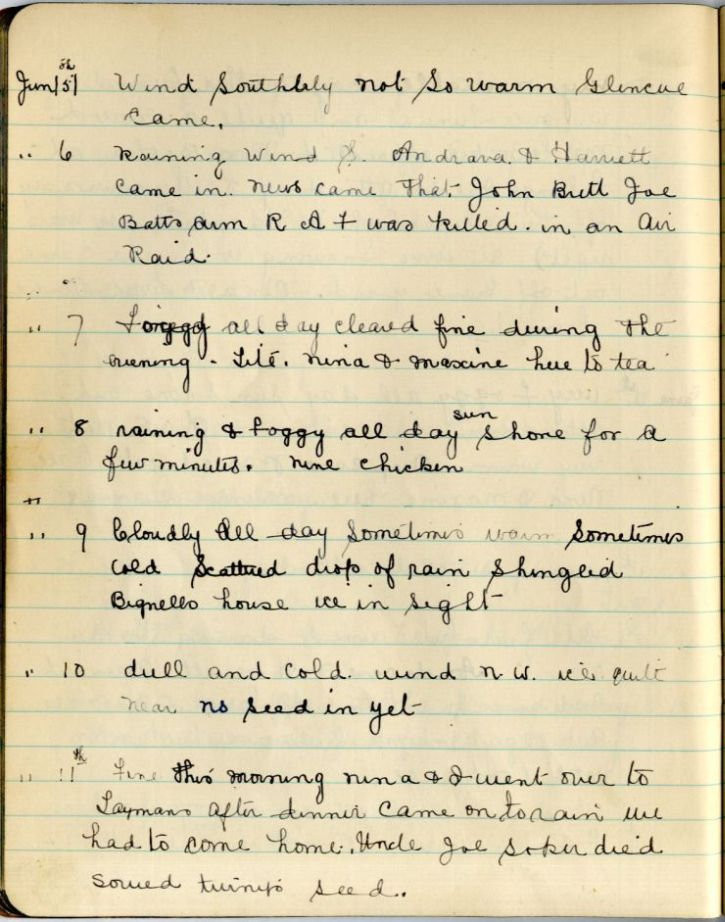 Jun 5th Wind Southlly not So warm Glencue
Came.
" 6 Raining Wind S. Andrava & Harriett
Came in. News came that John Brett Joe
Batts arm R A F was killed. in an Air
Raid.
" 7 Foggy all day cleared fine during the
evening. Lite. Nina & Maxine here to tea
" 8 raining & Foggy all day sun Shone for a
few minutes. nine chicken
" 9 Cloudly All day Sometimes warm Sometimes
Cold Scattued drop of rain Shingled
Bignells house ice in Sight
" 10 dull and Cold. wind N.W. ice quit
near no seed in yet
" 11th Fine this morning nina & I went over to
Laymans after dinner Came on to rain we
had to come home. Uncle Joe Soker died
sowed turnips seed.